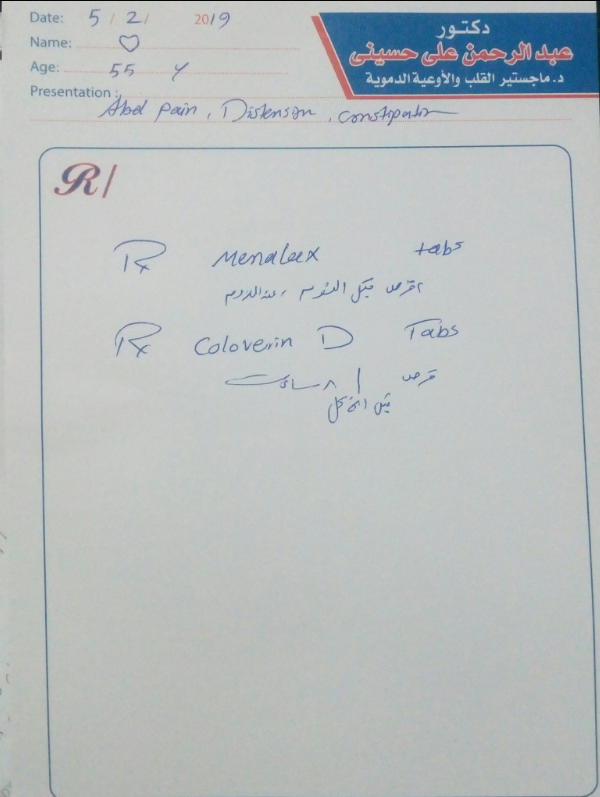 Date: 5 / 2 / 2019
Name: ♡
Age: 55 y
Presentation : Abd pain, Distension, constipation
دكتور
عبد الرحمن على حسينى
د. ماجستير القلب والأوعية الدموية
R/
Rx Menalax tabs
٢ قرص قبل النوم عند اللزوم
Rx Coloverin D Tabs
قرص / ٨ ساعات
قبل الأكل